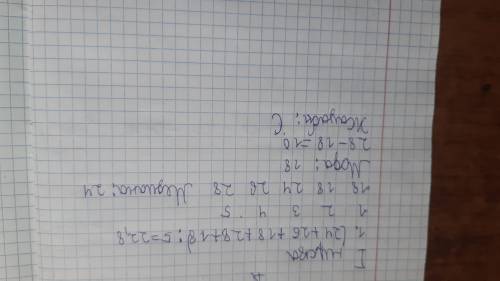 А
I нұсқа
1. (24+26+18+28+18) : 5 = 22,8
1 2 3 4 5
18 18 24 26 28 Медиана: 24
Мода: 18
28-18=10
Жауабы: С